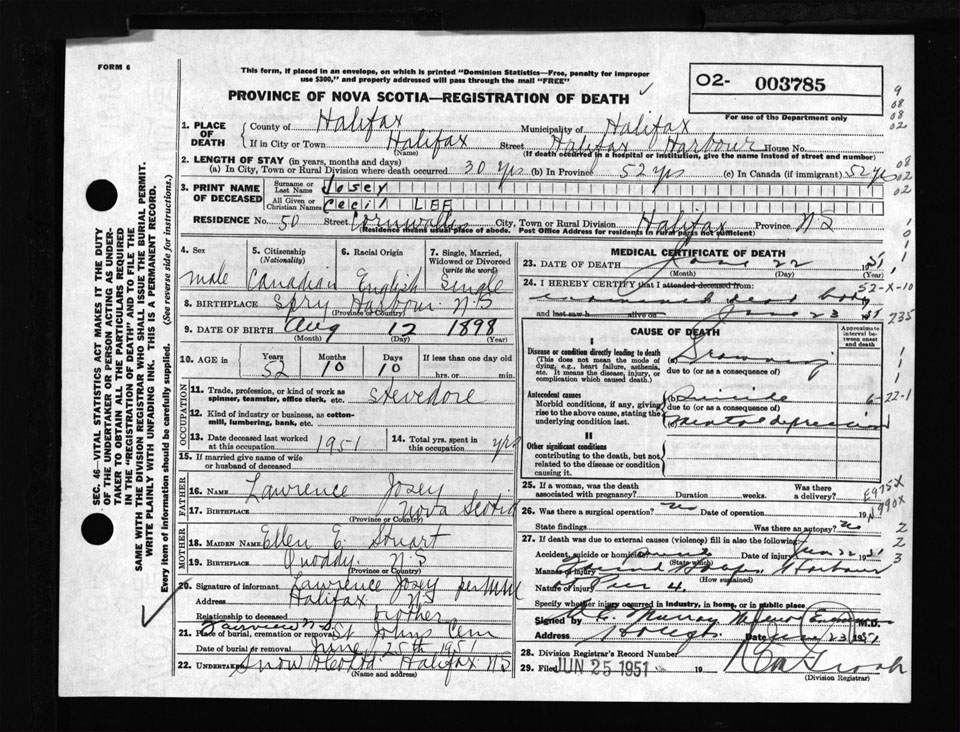 FORM 6
This form, if placed in an envelope, on which is printed "Dominion Statistics—Free, penalty for improper
use $300," and properly addressed will pass through the mail "FREE"
O2- 003785
PROVINCE OF NOVA SCOTIA—REGISTRATION OF DEATH
For use of the Department only
1. PLACE OF DEATH County of Halifax Municipality of Halifax
If in City or Town Halifax Street Halifax Harbour House No.
(Name) (If death occurred in a hospital or institution, give the name instead of street and number)
2. LENGTH OF STAY (in years, months and days)
(a) In City, Town or Rural Division where death occurred 30 yrs (b) In Province 52 yrs (c) In Canada (if immigrant) 52 yrs
3. PRINT NAME OF DECEASED Surname or Last Name Josey
All Given or Christian Names Cecil LEE
RESIDENCE No. 50 Street Cornwallis City, Town or Rural Division Halifax Province N S
(Residence means usual place of abode. Post Office Address for residents in rural parts not sufficient)
4. Sex 5. Citizenship (Nationality) 6. Racial Origin 7. Single, Married, Widowed or Divorced (write the word)
male Canadian English Single
8. BIRTHPLACE Spry Harbour N.S
(Province or Country)
9. DATE OF BIRTH Aug 12 1898
(Month) (Day) (Year)
10. AGE in Years Months Days If less than one day old
52 10 10 hrs. or min.
OCCUPATION
11. Trade, profession, or kind of work as spinner, teamster, office clerk, etc. Stevedore
12. Kind of industry or business, as cotton-mill, lumbering, bank, etc.
13. Date deceased last worked at this occupation 1951 14. Total yrs. spent in this occupation yrs
15. If married give name of wife or husband of deceased
FATHER
16. NAME Lawrence Josey
17. BIRTHPLACE Nova Scotia
(Province or Country)
MOTHER
18. MAIDEN NAME Ellen E. Stuart
19. BIRTHPLACE Quoddy N.S
(Province or Country)
20. Signature of informant Lawrence Josey per
Address Halifax NS
Relationship to deceased brother
Fairview N.S.
21. Place of burial, cremation or removal St Johns Cem
Date of burial or removal June 25th 1951
22. Undertaker Snow & Co Ltd. Halifax N S
(Name and address)
MEDICAL CERTIFICATE OF DEATH
23. DATE OF DEATH June 22 1951
(Month) (Day) (Year)
24. I HEREBY CERTIFY that I attended deceased from:
examined dead body
and last saw h alive on June 23 1951
52-X-10
235
CAUSE OF DEATH
Approximate interval between onset and death
I
Disease or condition directly leading to death
(This does not mean the mode of dying, e.g., heart failure, asthenia, etc. It means the disease, injury, or complication which caused death.)
(a) Drowning
due to (or as a consequence of)
Antecedent causes
Morbid conditions, if any, giving rise to the above cause, stating the underlying condition last.
(b) Suicide
due to (or as a consequence of)
(c) mental depression
6-22-1
II
Other significant conditions
contributing to the death, but not related to the disease or condition causing it.
25. If a woman, was the death associated with pregnancy? Duration weeks. Was there a delivery?
E975X
N990X
26. Was there a surgical operation? no Date of operation 19
State findings Was there an autopsy? no
27. If death was due to external causes (violence) fill in also the following:
Accident, suicide or homicide? Date of injury Jun 22 1951
(State which)
Manner of injury Found Halifax Harbour
(How sustained)
Nature of injury Pier 4
Specify whether injury occurred in industry, in home, or in public place
Signed by Murray M.D.
Address Date June 23 1951
28. Division Registrar's Record Number
29. Filed JUN 25 1951 19
(Division Registrar)
SEC. 46—VITAL STATISTICS ACT MAKES IT THE DUTY
OF THE UNDERTAKER OR PERSON ACTING AS UNDER-
TAKER TO OBTAIN ALL THE PARTICULARS REQUIRED
IN THE "REGISTRATION OF DEATH" AND TO FILE THE
SAME WITH THE DIVISION REGISTRAR WHO SHALL ISSUE THE BURIAL PERMIT.
WRITE PLAINLY WITH UNFADING INK. THIS IS A PERMANENT RECORD.
Every item of information should be carefully supplied. (See reverse side for instructions.)